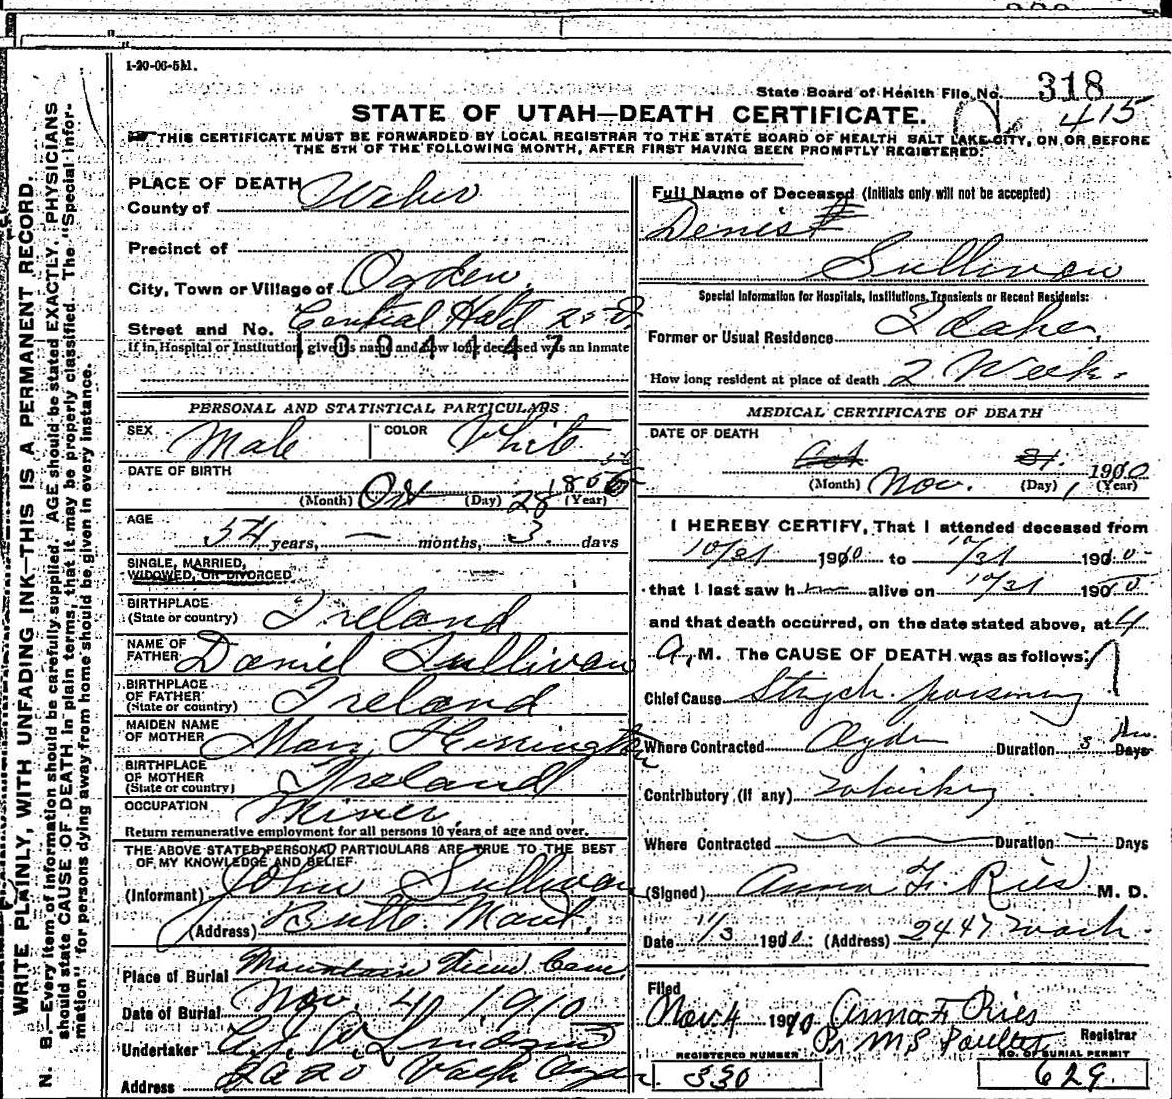 1-20-06-5M.
State Board of Health File No. 318
415
STATE OF UTAH—DEATH CERTIFICATE.
THIS CERTIFICATE MUST BE FORWARDED BY LOCAL REGISTRAR TO THE STATE BOARD OF HEALTH SALT LAKE CITY, ON OR BEFORE
THE 5TH OF THE FOLLOWING MONTH, AFTER FIRST HAVING BEEN PROMPTLY REGISTERED.
WRITE PLAINLY, WITH UNFADING INK—THIS IS A PERMANENT RECORD.
N. B.—Every item of information should be carefully supplied. AGE should be stated EXACTLY. PHYSICIANS
should state CAUSE OF DEATH in plain terms, that it may be properly classified. The "Special Infor-
mation" for persons dying away from home should be given in every instance.
PLACE OF DEATH
County of Weber
Precinct of
City, Town or Village of Ogden
Street and No. Central Hotel 25th
If in Hospital or Institution, give its name and how long deceased was an inmate
1004147
PERSONAL AND STATISTICAL PARTICULARS
SEX Male COLOR White
DATE OF BIRTH
(Month) Oct (Day) 28 (Year) 1856
AGE
54 years, — months, 3 days
SINGLE, MARRIED,
WIDOWED, OR DIVORCED
BIRTHPLACE
(State or country) Ireland
NAME OF
FATHER Daniel Sullivan
BIRTHPLACE
OF FATHER
(State or country) Ireland
MAIDEN NAME
OF MOTHER Mary Herrington
BIRTHPLACE
OF MOTHER
(State or country) Ireland
OCCUPATION Miner
Return remunerative employment for all persons 10 years of age and over.
THE ABOVE STATED PERSONAL PARTICULARS ARE TRUE TO THE BEST
OF MY KNOWLEDGE AND BELIEF
(Informant) John Sullivan
(Address) Butte Mont.
Place of Burial Mountain View Cem
Date of Burial Nov. 4 1910
Undertaker
Address 2220
Full Name of Deceased (Initials only will not be accepted)
Denis
Sullivan
Special Information for Hospitals, Institutions, Transients or Recent Residents:
Former or Usual Residence Idaho
How long resident at place of death 2 Week
MEDICAL CERTIFICATE OF DEATH
DATE OF DEATH
Oct 31. 1910
(Month) Nov. (Day) 1 (Year)
I HEREBY CERTIFY, That I attended deceased from
10/31 1910 to 10/31 1910
that I last saw him alive on 10/31 1910
and that death occurred, on the date stated above, at 4
A. M. The CAUSE OF DEATH was as follows:
Chief Cause Strych. poisoning
Where Contracted Ogden Duration 3 Hrs Days
Contributory (if any)
Where Contracted Duration — Days
(Signed) Anna F. Ries M. D.
Date 11/3 1910 (Address) 2447 Wash.
Filed
Nov 4 1910 Anna F Ries
Pr M S Poulter Registrar
REGISTERED NUMBER NO. OF BURIAL PERMIT
330 629